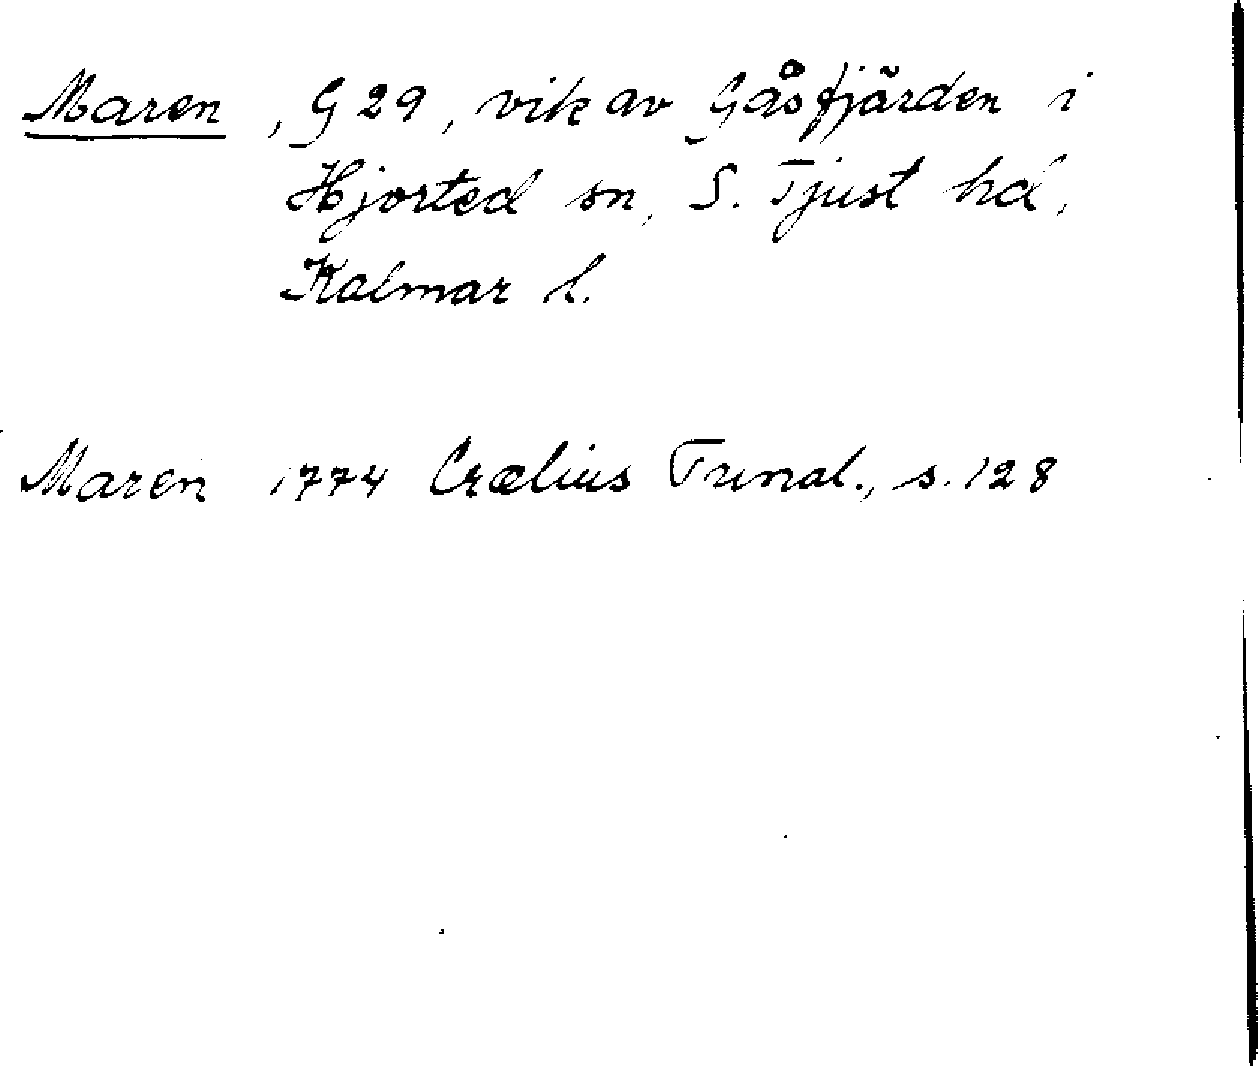 Maren, G 29, vik av Gåsfjärden i
Hjorted sn, S. Tjust hd,
Kalmar l.
Maren 1774 Crælius Tunal., s. 128